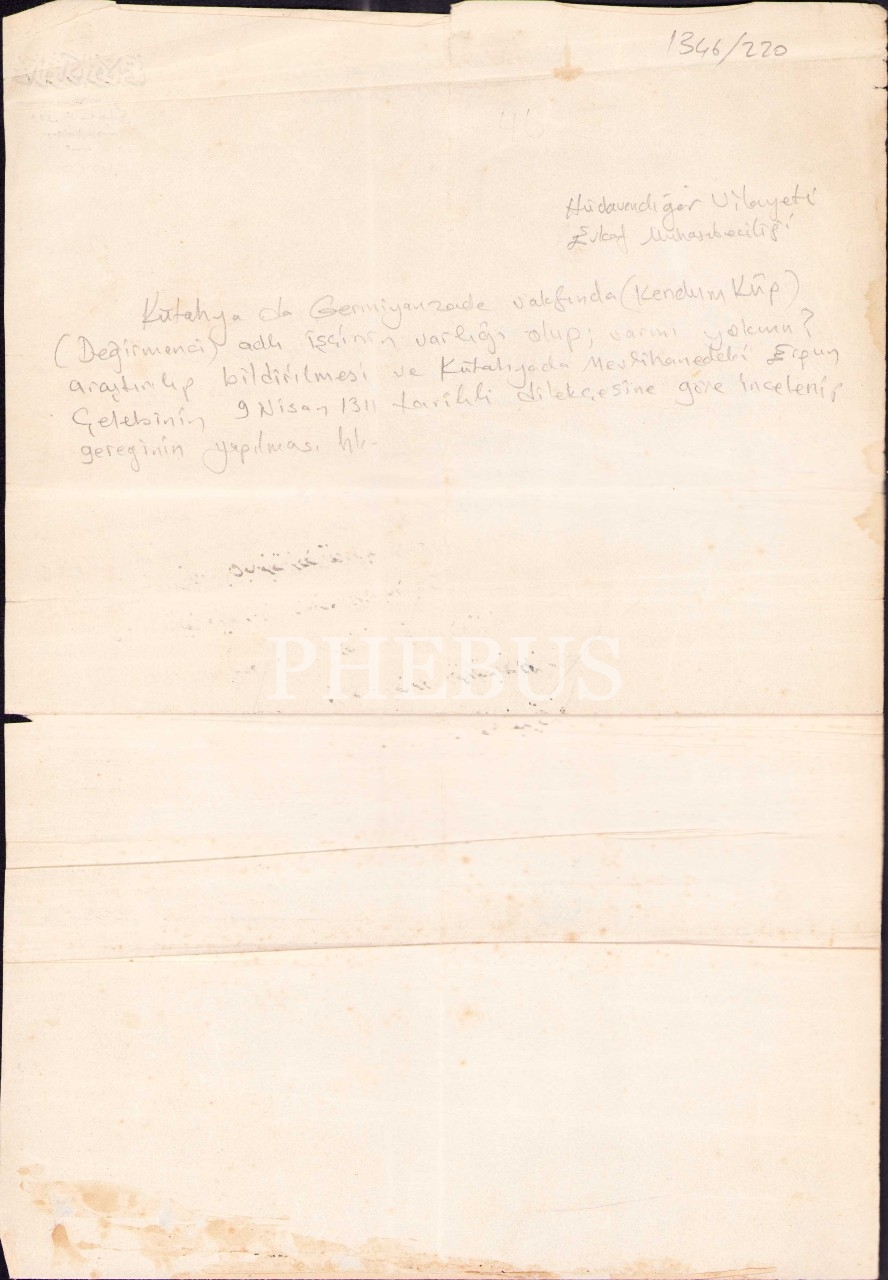 1346/220
Hüdavendigâr Vilayeti
Evkaf Muhasebeciliği
Kütahya da Germiyanzade vakfında (Kendüm Küp)
(Değirmenci) adlı işçinin varlığı olup; varmı yokmu?
araştırılıp bildirilmesi ve Kütahyada Mevlihanedeki Ergun
Çelebinin 9 Nisan 1311 tarihli dilekçesine göre incelenip
gereginin yapılması hk.
PHEBUS